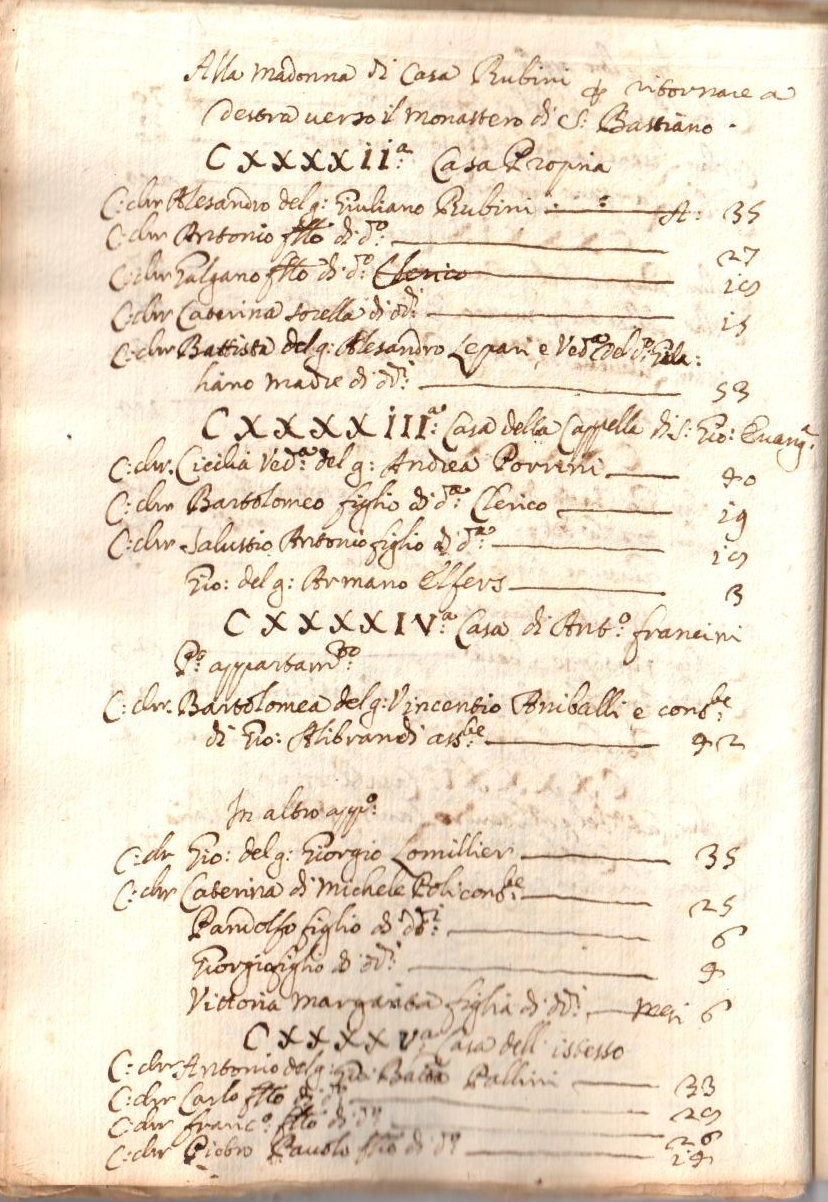 Alla Madonna di Casa Rubini p ritornare a
destra verso il Monastero di S: Bastiano.
CXXXXIIª: Casa Propria
C: chr Alesandro del q: Giuliano Rubini A: 35
C: chr Antonio fllo di dº: 27
C: chr Galgano fllo di dº: Clerico 19
C: chr Caterina sorella di ddi: 15
C: chr Battista del q: Alesandro Lepari e Vedª del dº: Giulia:
hano madre di ddi: 53
CXXXXIIIª: Casa della Cappella di S: Gio: Evangª:
C: chr. Cicilia Vedª: del q: Andrea Porrini 40
C: chr Bartolomeo figlio di dª: Clerico 19
C: chr Salustio Antonio figlio di dª: 15
Gio: del q: Armano Elfers 3
CXXXXIVª: Casa di Antº: Francini
Pº: appartamto:
C: chr. Bartolomea del q: Vincentio Aniballi e consbe:
di Gio: Alibrandi assbe: 42
In altro appº:
C: chr Gio: del q: Giorgio Lomillier 35
C: chr Caterina di Michele Poli consbe: 25
Pandolfo figlio di ddi: 6
Giorgio figlio di ddi: 4
Vittoria Margarita figlia di ddi: mesi 6
CXXXXVª: Casa dell' istesso
C: chr Antonio del q: Gio: Batta Pallini 33
C: chr Carlo fllo di dº: 29
C: chr Francº: fllo di dº: 26
C: chr Pietro Pavolo fllo di dº 19